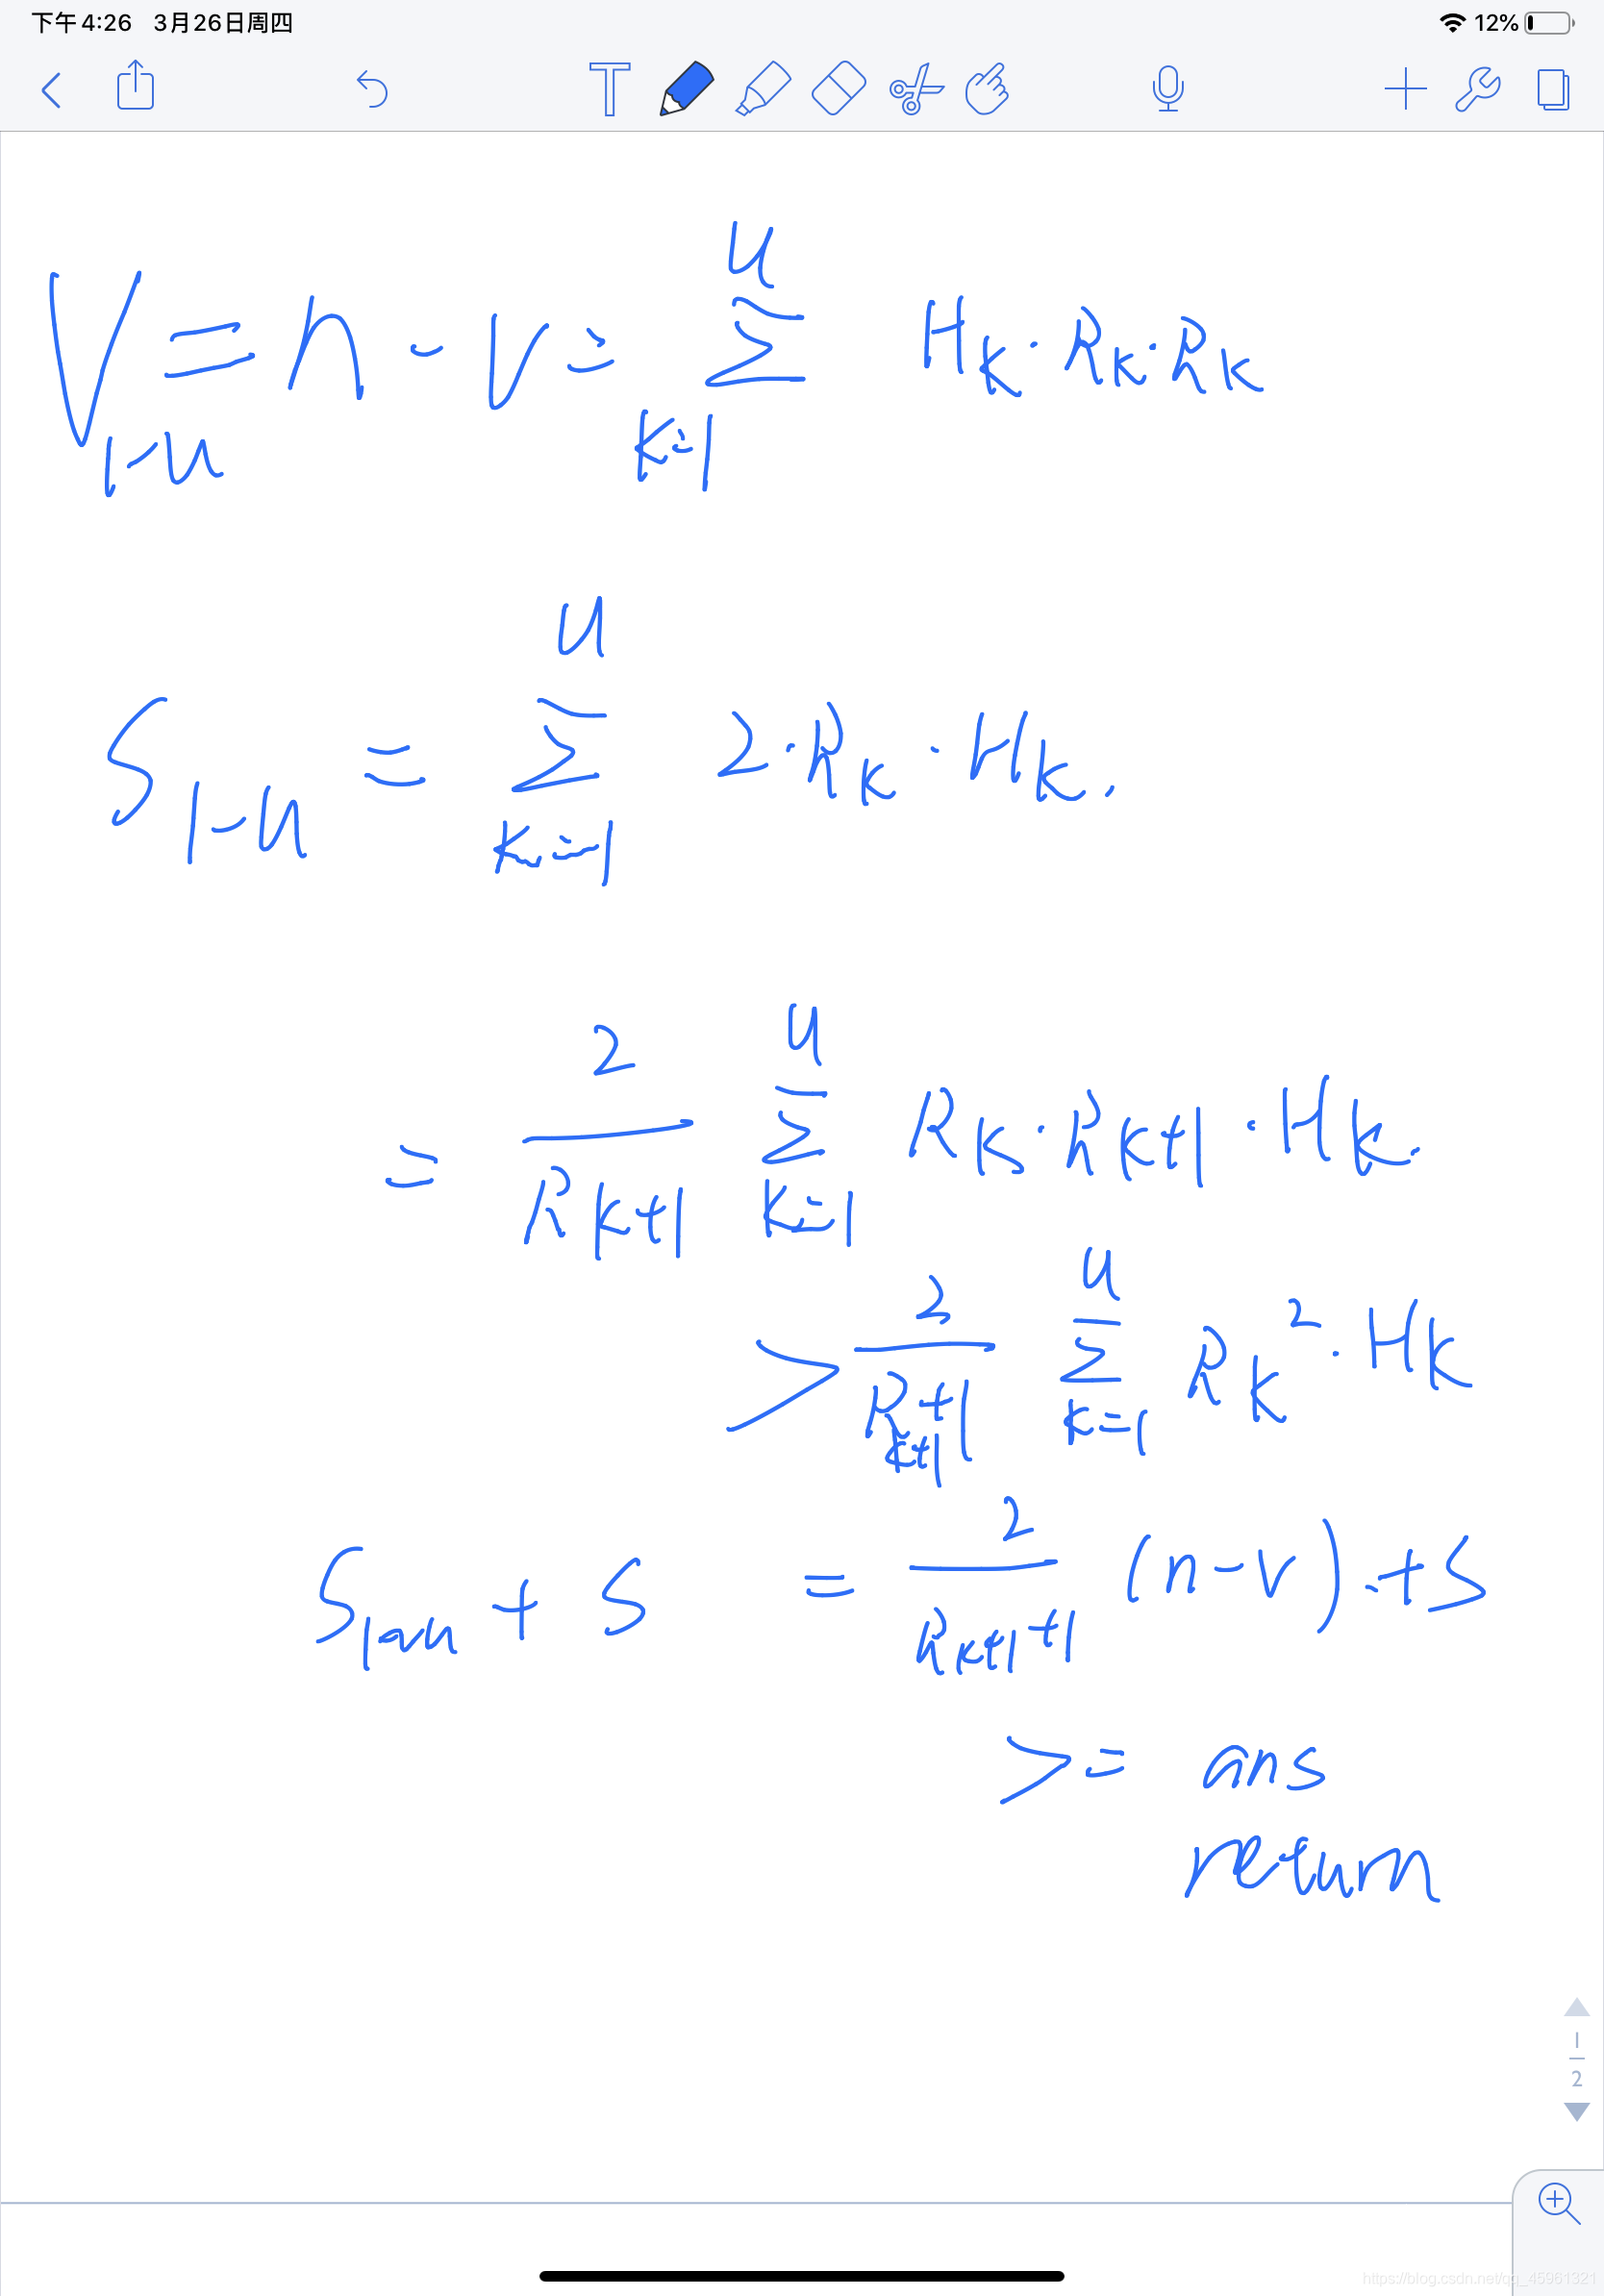 下午4:26 3月26日周四 12%
V₁₋ᵤ = n - v = Σ_{k=1}^{u} H_k · R_k · R_k
S₁₋ᵤ = Σ_{k=1}^{u} 2 · R_k · H_k .
= 2/R_{k+1} Σ_{k=1}^{u} R_k · R_{k+1} · H_k .
> 2/(R_{k+1}+1) Σ_{k=1}^{u} R_k² · H_k
S₁₋ᵤ + S = 2/(R_{k+1}+1) (n-v) + S
>= ans
return
1
2
https://blog.csdn.net/qq_45961321